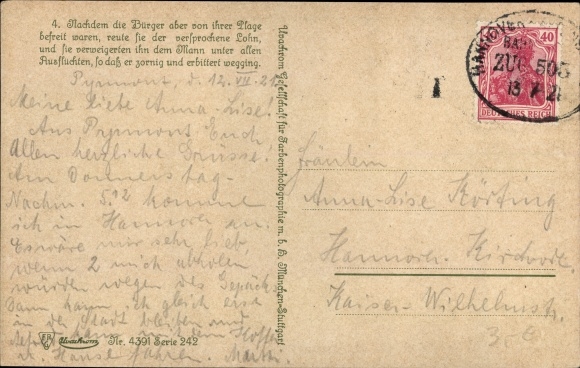 4. Nachdem die Bürger aber von ihrer Plage
befreit waren, reute sie der versprochene Lohn,
und sie verweigerten ihn dem Mann unter allen
Ausflüchten, so daß er zornig und erbittert wegging.
Pyrmont, d. 12. VII. 21.
Meine liebe Anna-Lise.
Aus Pyrmont Euch
Allen herzliche Grüsse.
Am Donners tag
Nachm. 5.12 komme
ich in Hannover an.
Es wäre mir sehr lieb,
wenn 2 mich abholen
würden wegen des Gepäck
Dann kann ich gleich erst
in der Stadt bleiben und
dann
Hause fahren.
Uvachrom Nr. 4391 Serie 242
Uvachrom Gesellschaft für Farbenphotographie m. b. H. München-Stuttgart
HANNOVER
BAHN
ZUG 505
13 7 21
40
DEUTSCHES REICH
Fräulein
Anna-Lise Körting
Hannover-Kirchrode
Kaiser-Wilhelmstr.